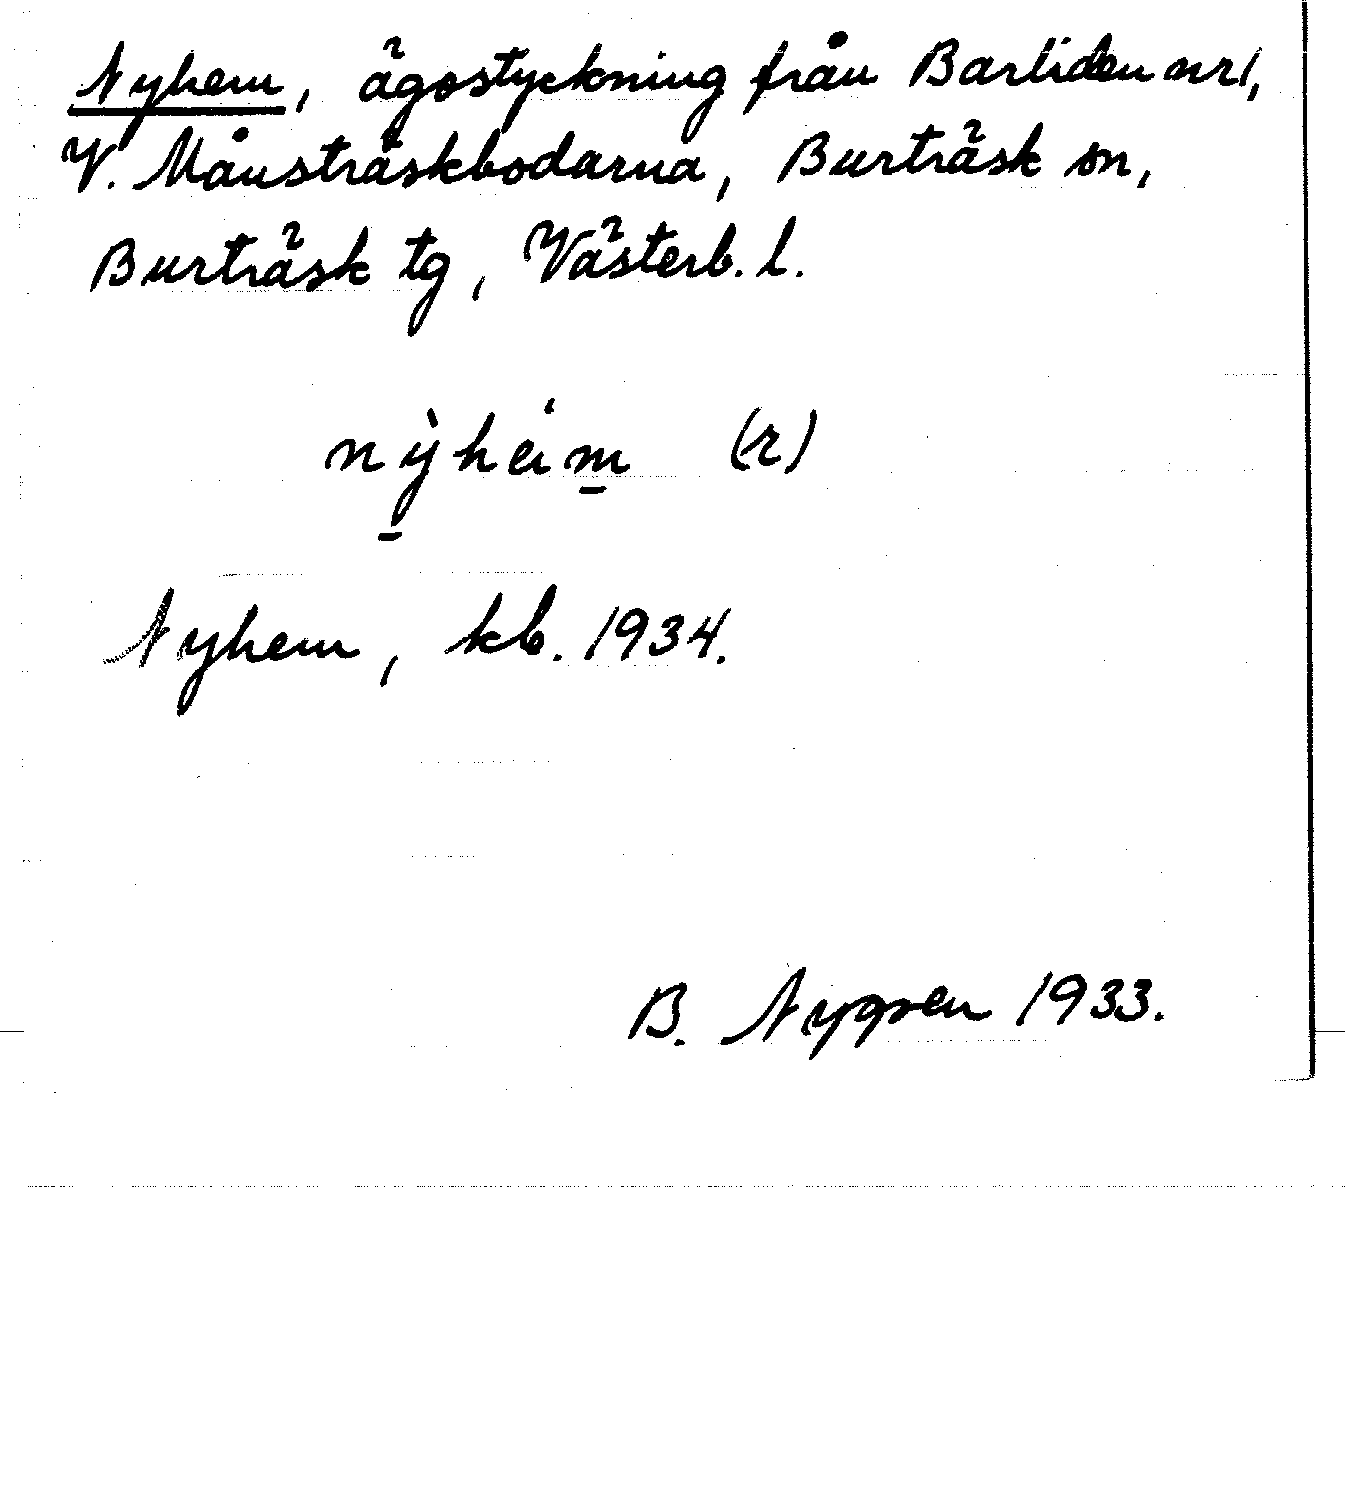 Nyhem, ägostyckning från Barliden nr 1,
V. Månsträskbodarna, Burträsk sn,
Burträsk tg, Västerb. l.
nỳ̱héim̱ (r)
Nyhem, kb. 1934.
B. Nygren 1933.